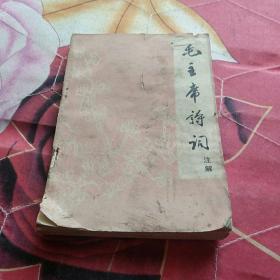 毛主席诗词
注解